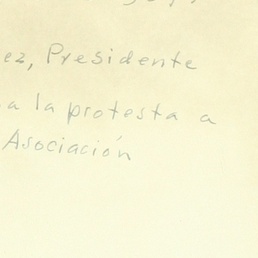 ez, Presidente
a la protesta a
Asociación